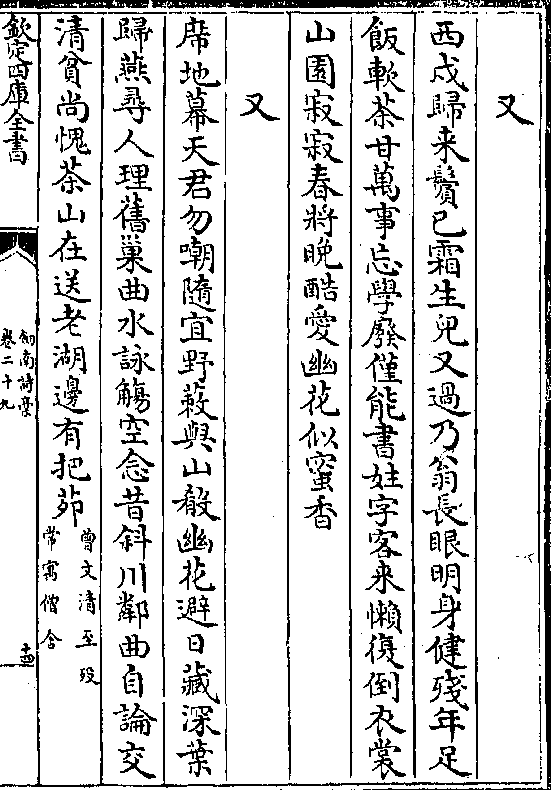 又
西戍歸来鬢已霜生兒又過乃翁長眼明身健殘年足
飯軟茶甘萬事忘學廢僅能書姓字客来懶復倒衣裳
山園寂寂春將晚酷愛幽花似蜜香
又
席地幕天君勿嘲隨宜野蔌與山殽幽花避日藏深葉
歸燕尋人理舊巢曲水詠觴空念昔斜川鄰曲自論交
清貧尚愧茶山在送老湖邊有把茆
曾文清至殁
常寓僧舍
欽定四庫全書
劒南詩槀
卷二十九
十四